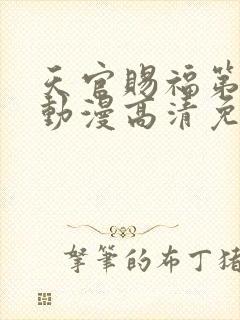 天官賜福第
動漫高清免
拏筆的布丁猪